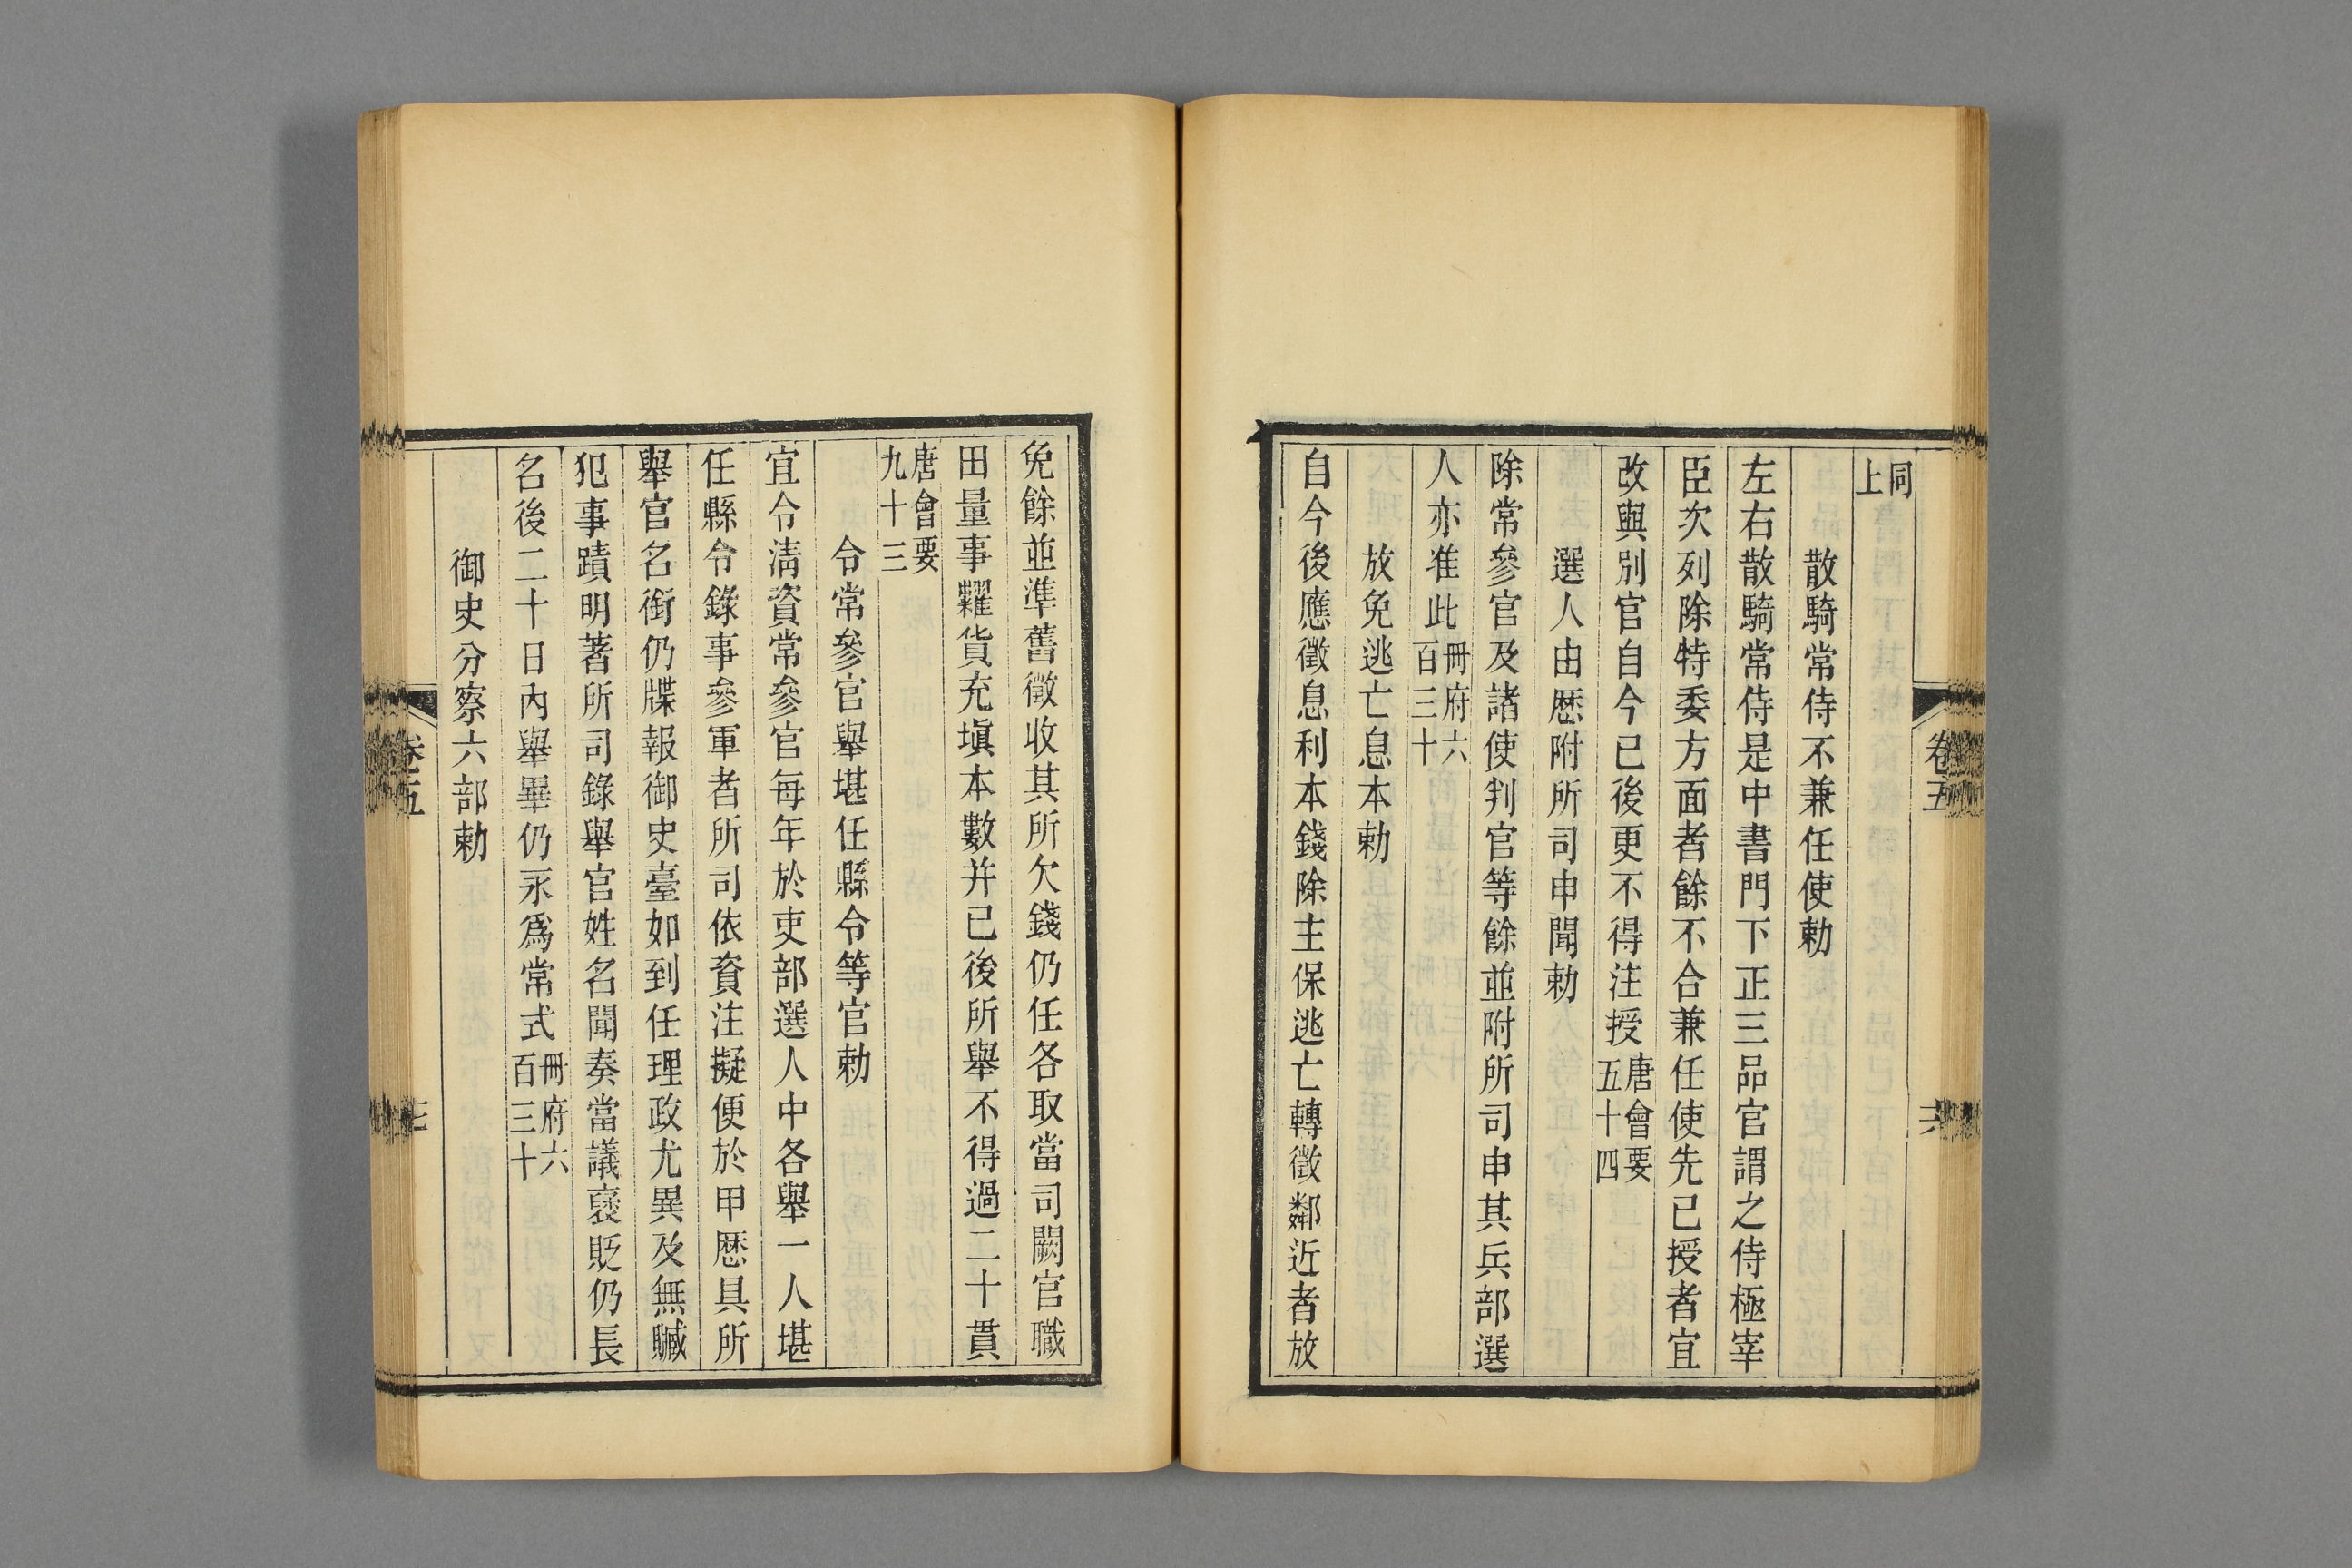 同上
散騎常侍不兼任使勅
左右散騎常侍是中書門下正三品官謂之侍極宰
臣次列除特委方面者餘不合兼任使先已授者宜
改與別官自今已後更不得注授唐會要五十四
選人由歷附所司申聞勅
除常參官及諸使判官等餘並附所司申其兵部選
人亦准此冊府六百三十
放免逃亡息本勅
自今後應徵息利本錢除主保逃亡轉徵鄰近者放
卷五
免餘並準舊徵收其所欠錢仍任各取當司闕官職
田量事糶貨充塡本數并已後所舉不得過二十貫
唐會要九十三
令常參官舉堪任縣令等官勅
宜令淸資常參官每年於吏部選人中各舉一人堪
任縣令錄事參軍者所司依資注擬便於甲歷具所
舉官名銜仍牒報御史臺如到任理政尤異及無贓
犯事蹟明著所司錄舉官姓名聞奏當議襃貶仍長
名後二十日內舉畢仍永爲常式冊府六百三十
御史分察六部勅
卷五